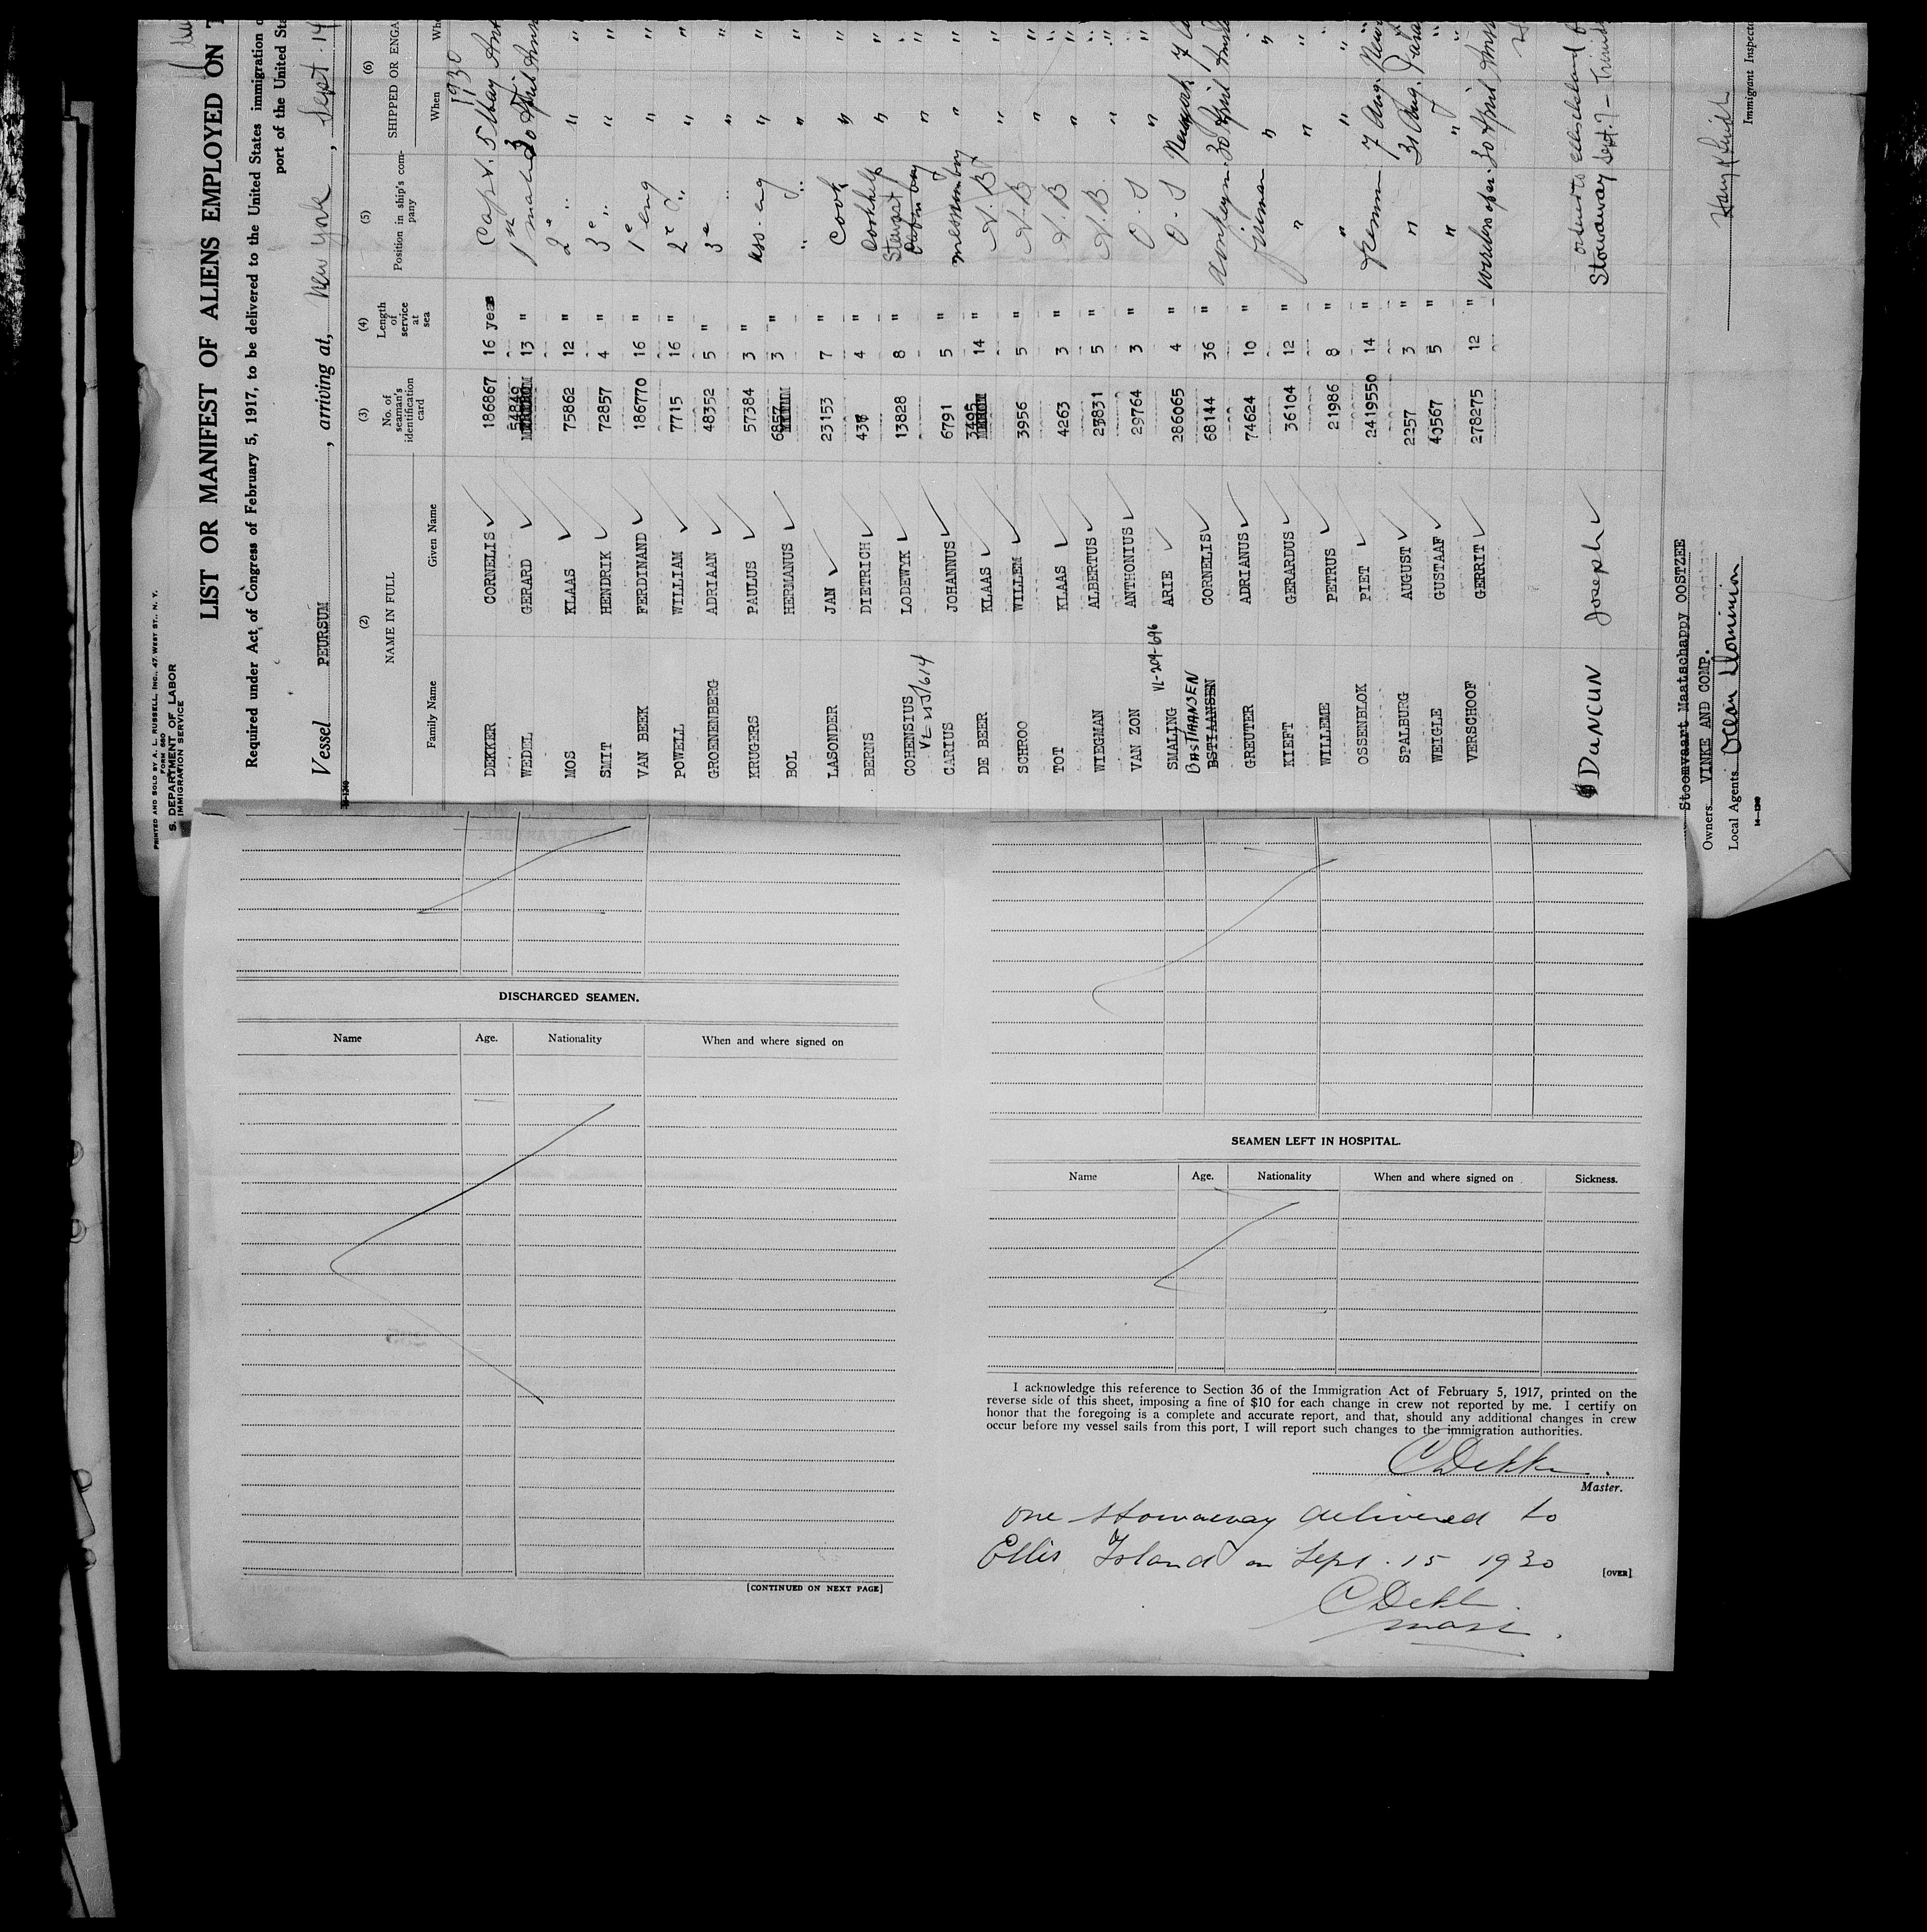 PRINTED AND SOLD BY A. L. RUSSELL, INC., 47 WEST ST., N. Y.
FORM 680
S. DEPARTMENT OF LABOR
IMMIGRATION SERVICE
LIST OR MANIFEST OF ALIENS EMPLOYED ON T
Required under Act of Congress of February 5, 1917, to be delivered to the United States immigration
port of the United Sta
Vessel PEURSUM, arriving at, New York, Sept 14
(2) (3) (4) (5) (6)
NAME IN FULL No. of seaman's identification card Length of service at sea Position in ship's company SHIPPED OR ENGA
Family Name Given Name When Whe
1930
DEKKER CORNELIS 186867 16 year Capt. 5 May
WEDEL GERARD 54849 13 " 1st mate 30 April
MOS KLAAS 75862 12 " 2e " "
SMIT HENDRIK 72857 4 " 3e " "
VAN BEEK FERDINAND 186770 16 " 1e eng "
POWELL WILLIAM 7715 16 " 2e " "
GROENENBERG ADRIAAN 48352 5 " 3e " "
KRUGERS PAULUS 57384 3 " ass. eng "
BOL HERMANUS 6857 3 " " "
LASONDER JAN 23153 7 " Cook "
BERNS DIETRICH 437 4 " "
COHENSIUS LODEWYK 13828 8 " Stewart "
CARIUS JOHANNUS 6791 5 " messroom boy "
DE BEER KLAAS 3495 14 " A. B. "
SCHROO WILLEM 3956 5 " A. B "
TOT KLAAS 4263 3 " A. B "
WIEGMAN ALBERTUS 23831 5 " A. B. "
VAN ZON ANTHONIUS 29764 3 " O. S "
VL-209-696
SMALING ARIE 286065 4 " O. S Newyork 7
BASTIAANSEN
BSTIAANSEN CORNELIS 68144 36 " donkeyman 30 April
GREUTER ADRIANUS 74624 10 " fireman "
KIEFT GERARDUS 36104 12 " " "
WILLEME PETRUS 21986 8 " " "
OSSENBLOK PIET 2419550 14 " 7 Aug.
SPALBURG AUGUST 2257 3 " " 31 Aug.
WEIGLE GUSTAAF 40567 5 " " "
VERSCHOOF GERRIT 278275 12 " wireless oper. 30 April
DUNCUN Joseph Stowaway Sept. 7 - Trinidad
Stoomvaart Maatschappy OOSTZEE
Owners VINKE AND COMP.
Local Agents Ocean Dominion
Immigrant Inspecto
14—1240
DISCHARGED SEAMEN.
Name Age. Nationality When and where signed on
[CONTINUED ON NEXT PAGE]
SEAMEN LEFT IN HOSPITAL.
Name Age. Nationality When and where signed on Sickness.
I acknowledge this reference to Section 36 of the Immigration Act of February 5, 1917, printed on the
reverse side of this sheet, imposing a fine of $10 for each change in crew not reported by me. I certify on
honor that the foregoing is a complete and accurate report, and that, should any additional changes in crew
occur before my vessel sails from this port, I will report such changes to the immigration authorities.
C Dekker.
Master.
one stowaway delivered to
Ellis Island on Sept. 15 1930
[OVER]
C Dekk